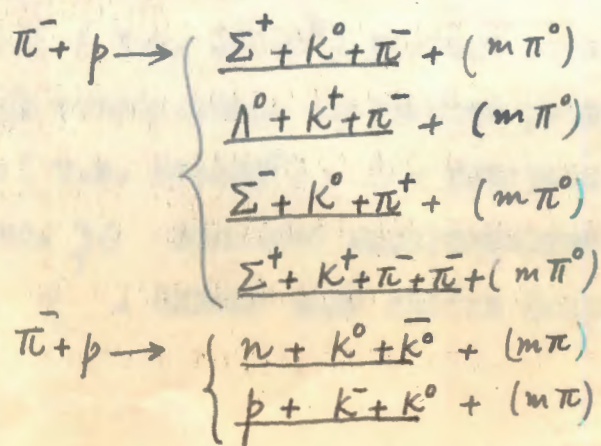 π⁻ + p → { Σ⁺ + K⁰ + π⁻ + (mπ⁰)
Λ⁰ + K⁺ + π⁻ + (mπ⁰)
Σ⁻ + K⁰ + π⁺ + (mπ⁰)
Σ⁺ + K⁺ + π⁻ + π⁻ + (mπ⁰)
π⁻ + p → { n + K⁰ + K̄⁰ + (mπ)
p + K⁻ + K⁰ + (mπ)